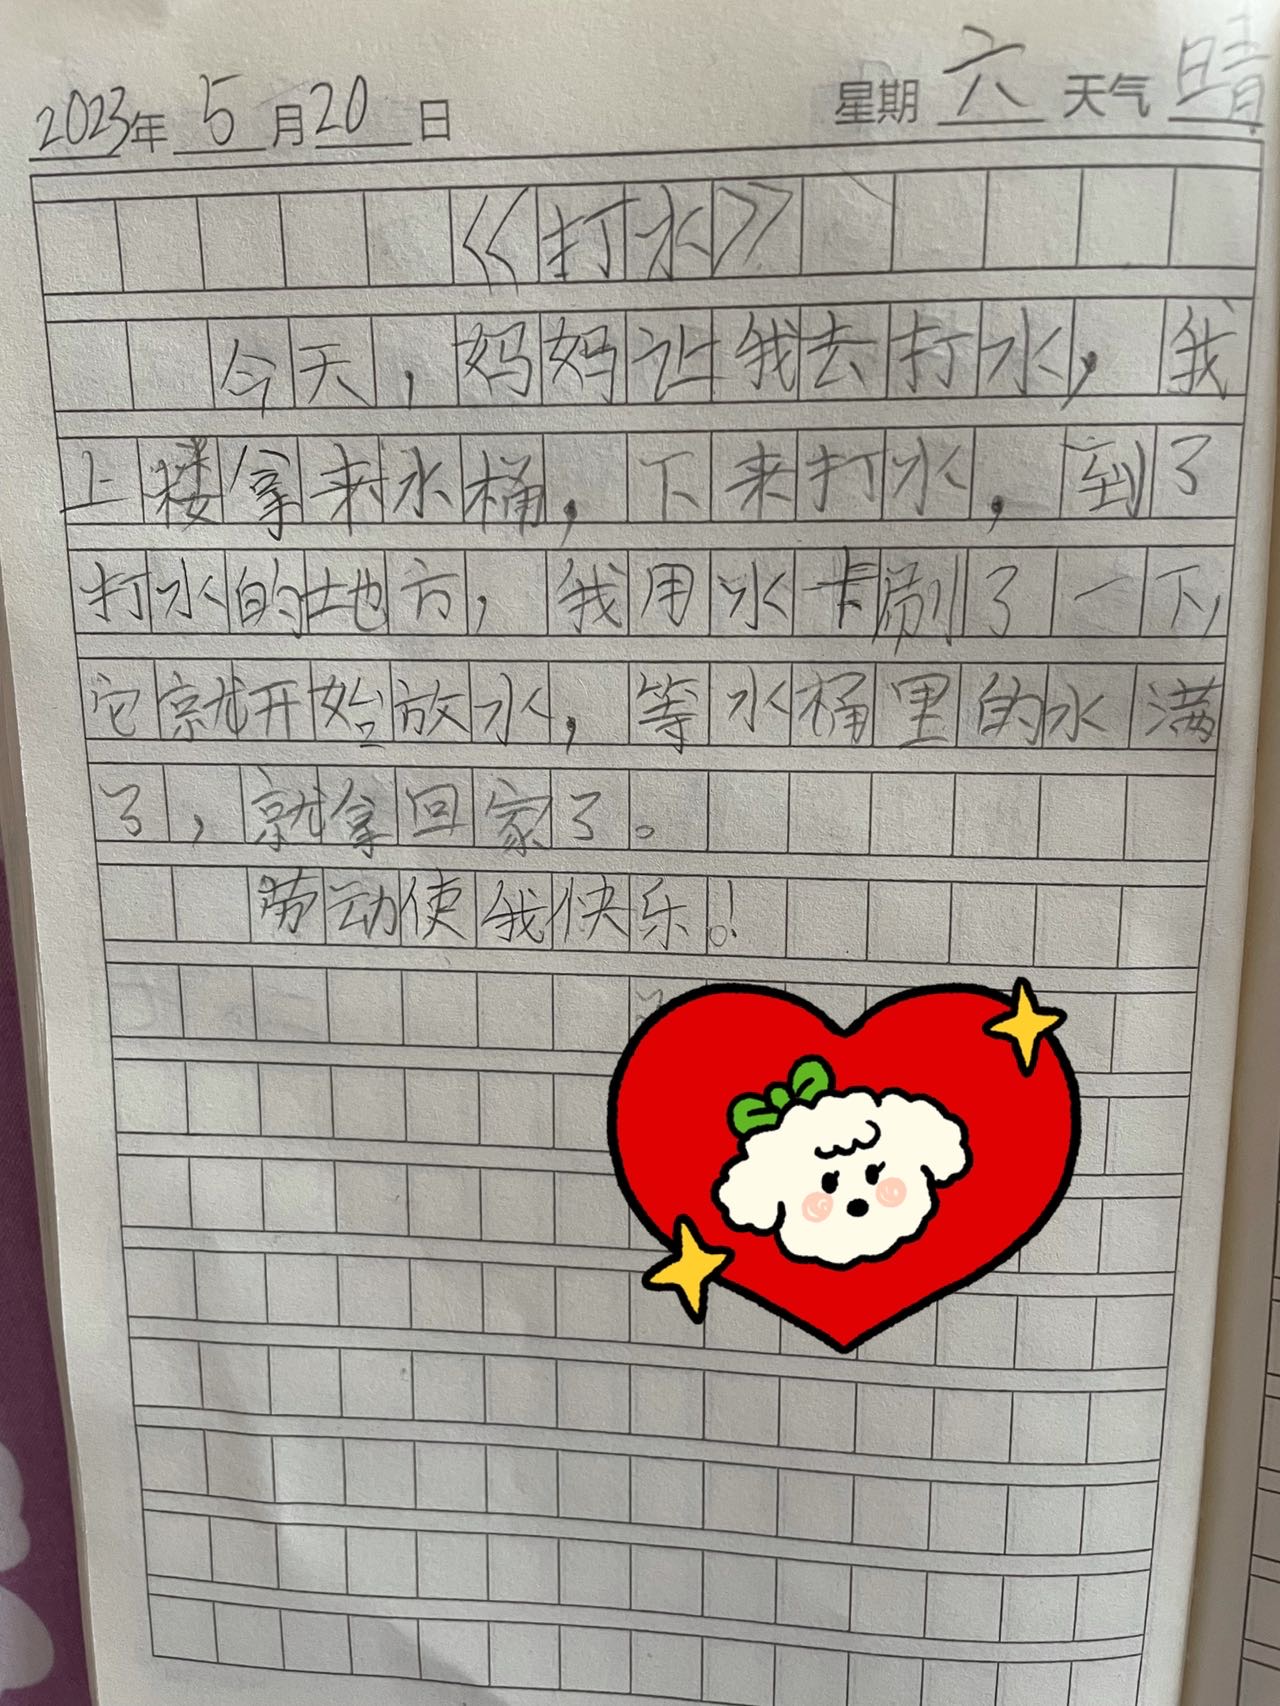 2023年 5 月 20 日 星期 六 天气 晴
《打水》
今天，妈妈让我去打水，我
上楼拿来水桶，下来打水，到了
打水的地方，我用水卡刷了一下，
它就开始放水，等水桶里的水满
了，就拿回家了。
劳动使我快乐！